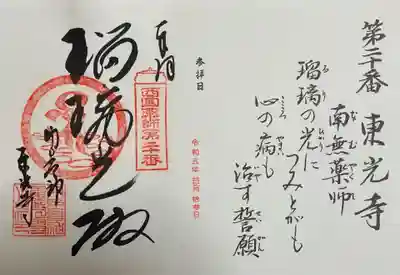 第二十番 東光寺
南無薬師
瑠璃の光に
つみとがも
心の病も
治す誓願
参拝日
令和五年
奉拝
西国薬師第二十番
瑠璃光殿
東光寺